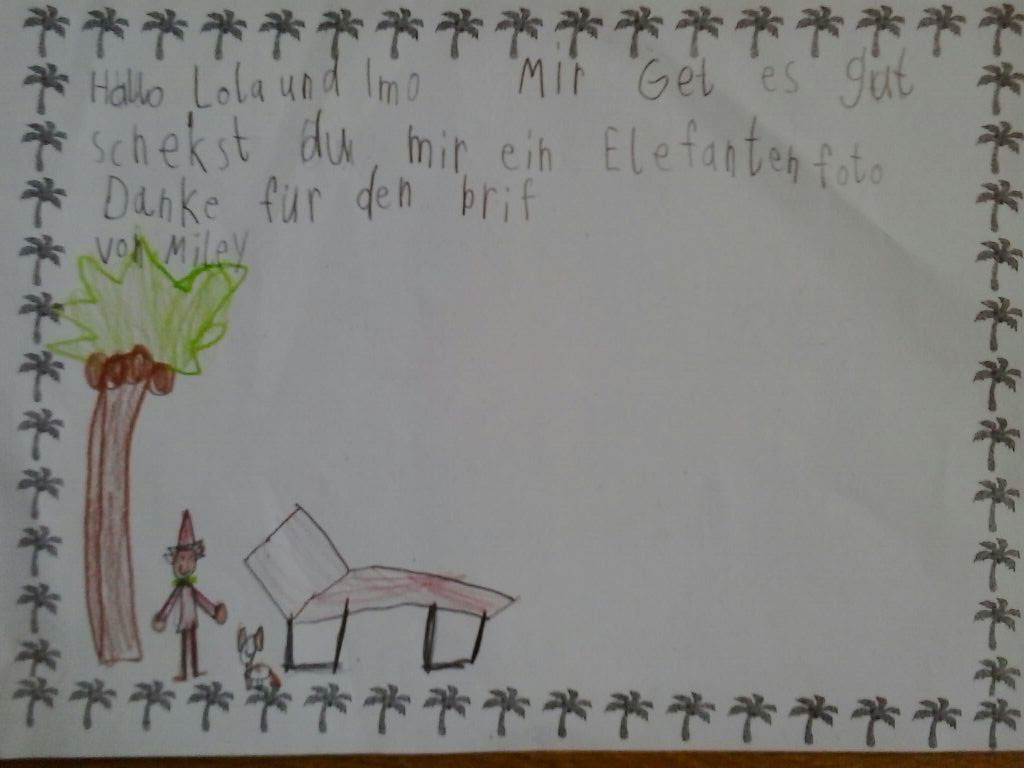 Hallo Lola und Imo Mir Get es gut
schekst du mir ein Elefanten foto
Danke für den brif
von Miley